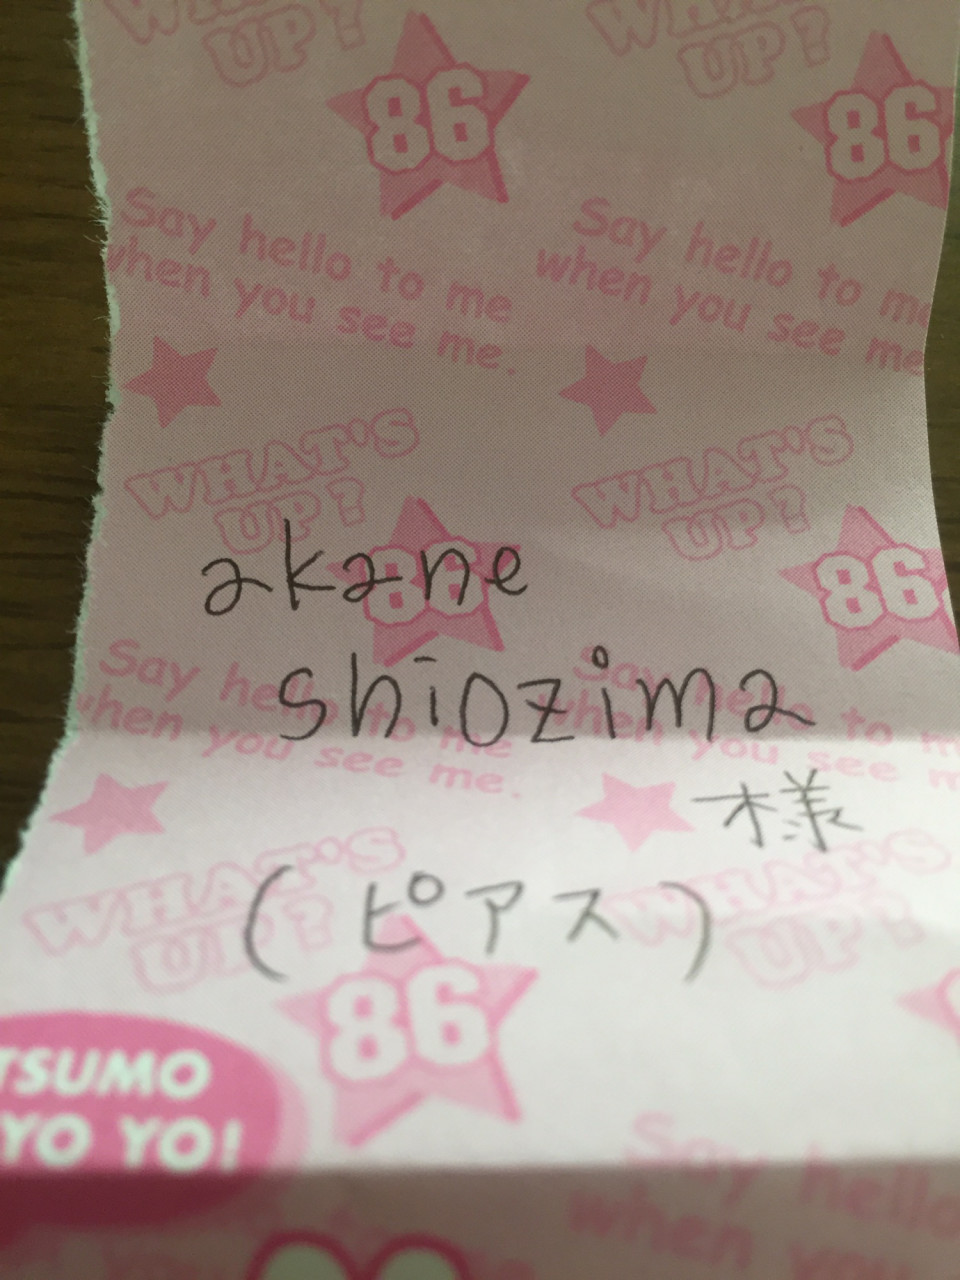 WHAT'S WHAT'S
UP? UP?
86 86
Say hello to me Say hello to me
when you see me. when you see me
WHAT'S WHAT'S
UP? UP?
86 86
akane
Say hello to me Say hello to
when you see me. when you see
shiozima
様
WHAT'S WHAT'S
UP? UP?
(ピアス)
86
TSUMO
YO YO!
Say hello
when you